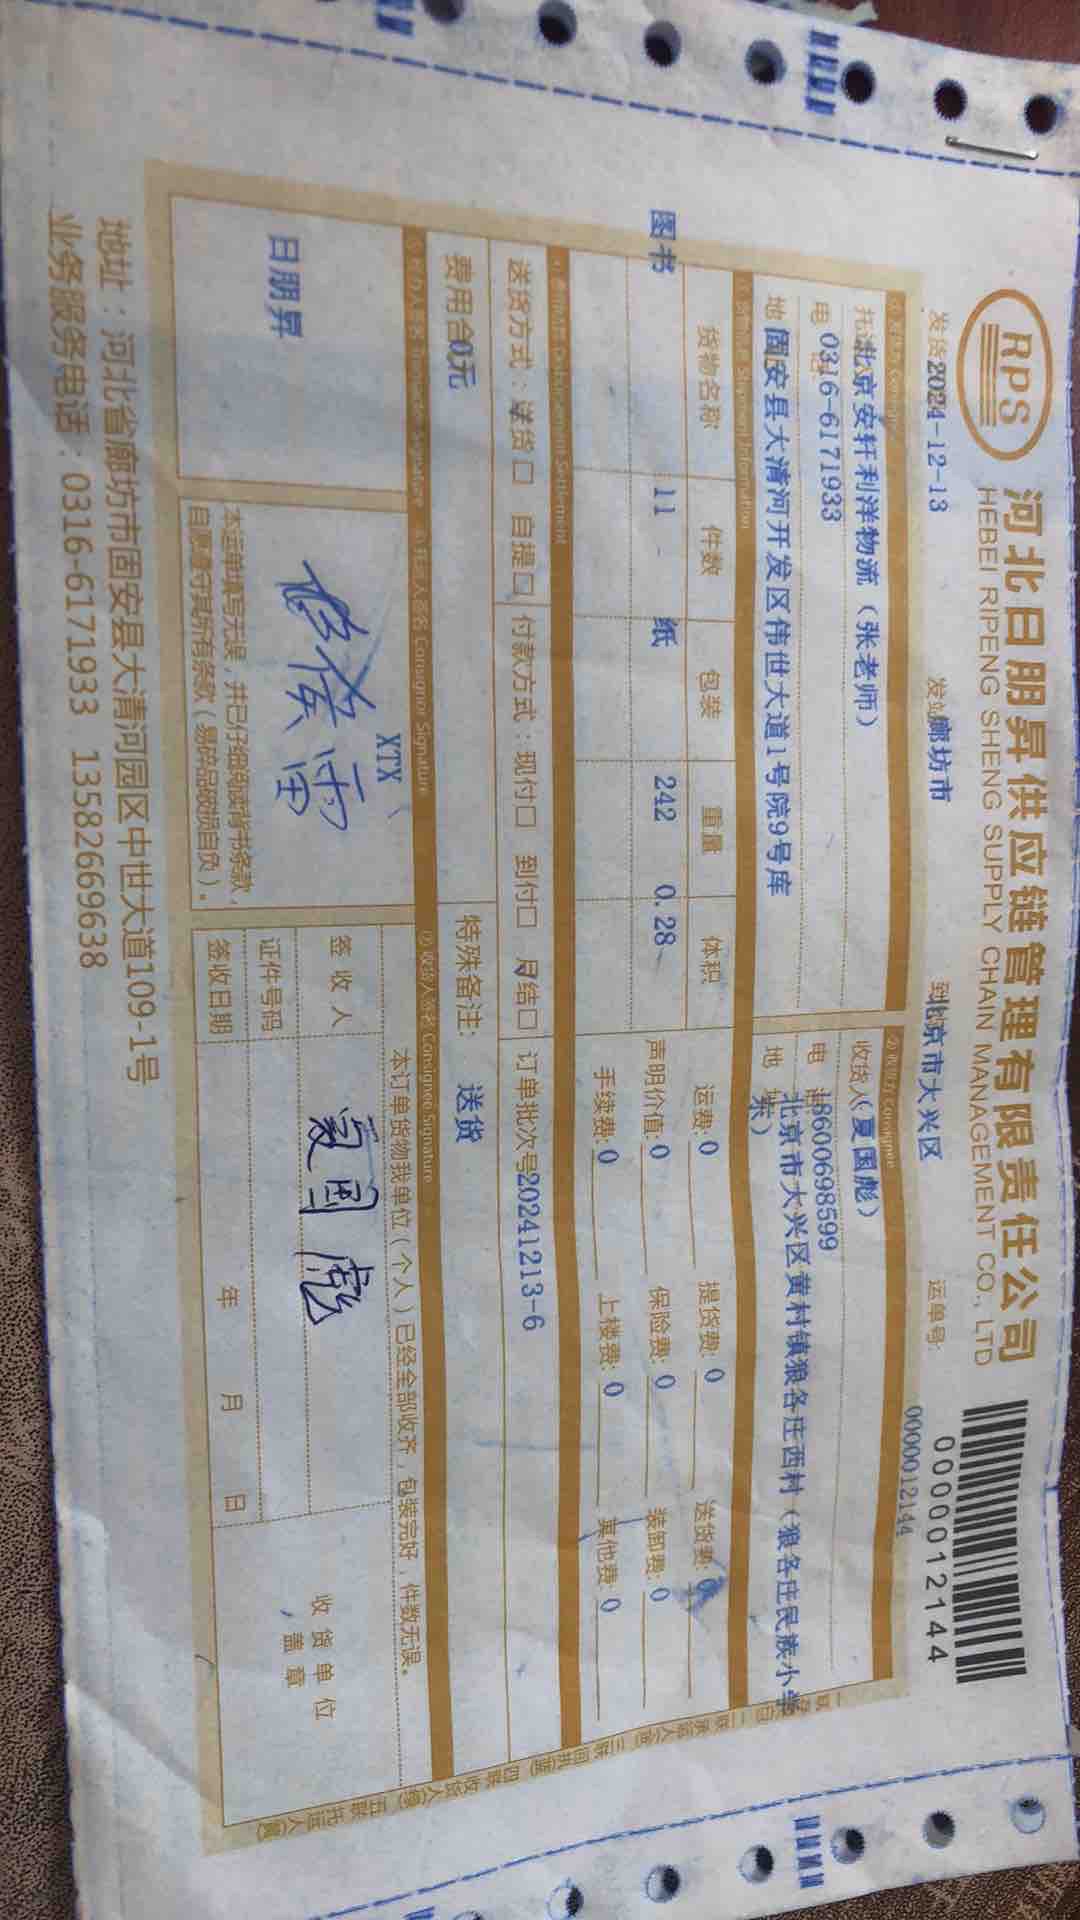 RPS
河北日朋昇供应链管理有限责任公司
HEBEI RIPENG SHENG SUPPLY CHAIN MANAGEMENT CO., LTD
000012144
发货 2024-12-13 发站 廊坊市 到 北京市大兴区 运单号: 0000012144
托运 北京安轩利洋物流（张老师）
电 0316-6171933
地 固安县大清河开发区伟世大道1号院9号库
② 收货方 Consignee
收货人（夏国彪）
电 18600698599
地 址 北京市大兴区黄村镇狼各庄西村（狼各庄民族小学东）
Shipment Information
货物名称 件数 包装 重量 体积
图书 11 纸 242 0.28
运费: 0 提货费: 0 送货费: 0
声明价值: 0 保险费: 0 装卸费: 0
手续费: 0 上楼费: 0 其他费: 0
送货方式：送货□ 自提□ 付款方式：现付□ 到付□ 月结□ 订单批次号20241213-6
费用合 0元 特殊备注: 送货
Consignor Signature
⑦ 收货人签名 Consignee Signature
日朋昇
XTX
本运单填写无误，并已仔细阅读背书条款，
自愿遵守其所有条款（易碎品破损自负）。
本订单货物我单位（个人）已经全部收齐，包装完好，件数无误。
签收人 夏国彪
证件号码
签收日期 年 月 日
收货单位
盖章
地址：河北省廊坊市固安县大清河园区中世大道109-1号
业务服务电话：0316-6171933 13582669638